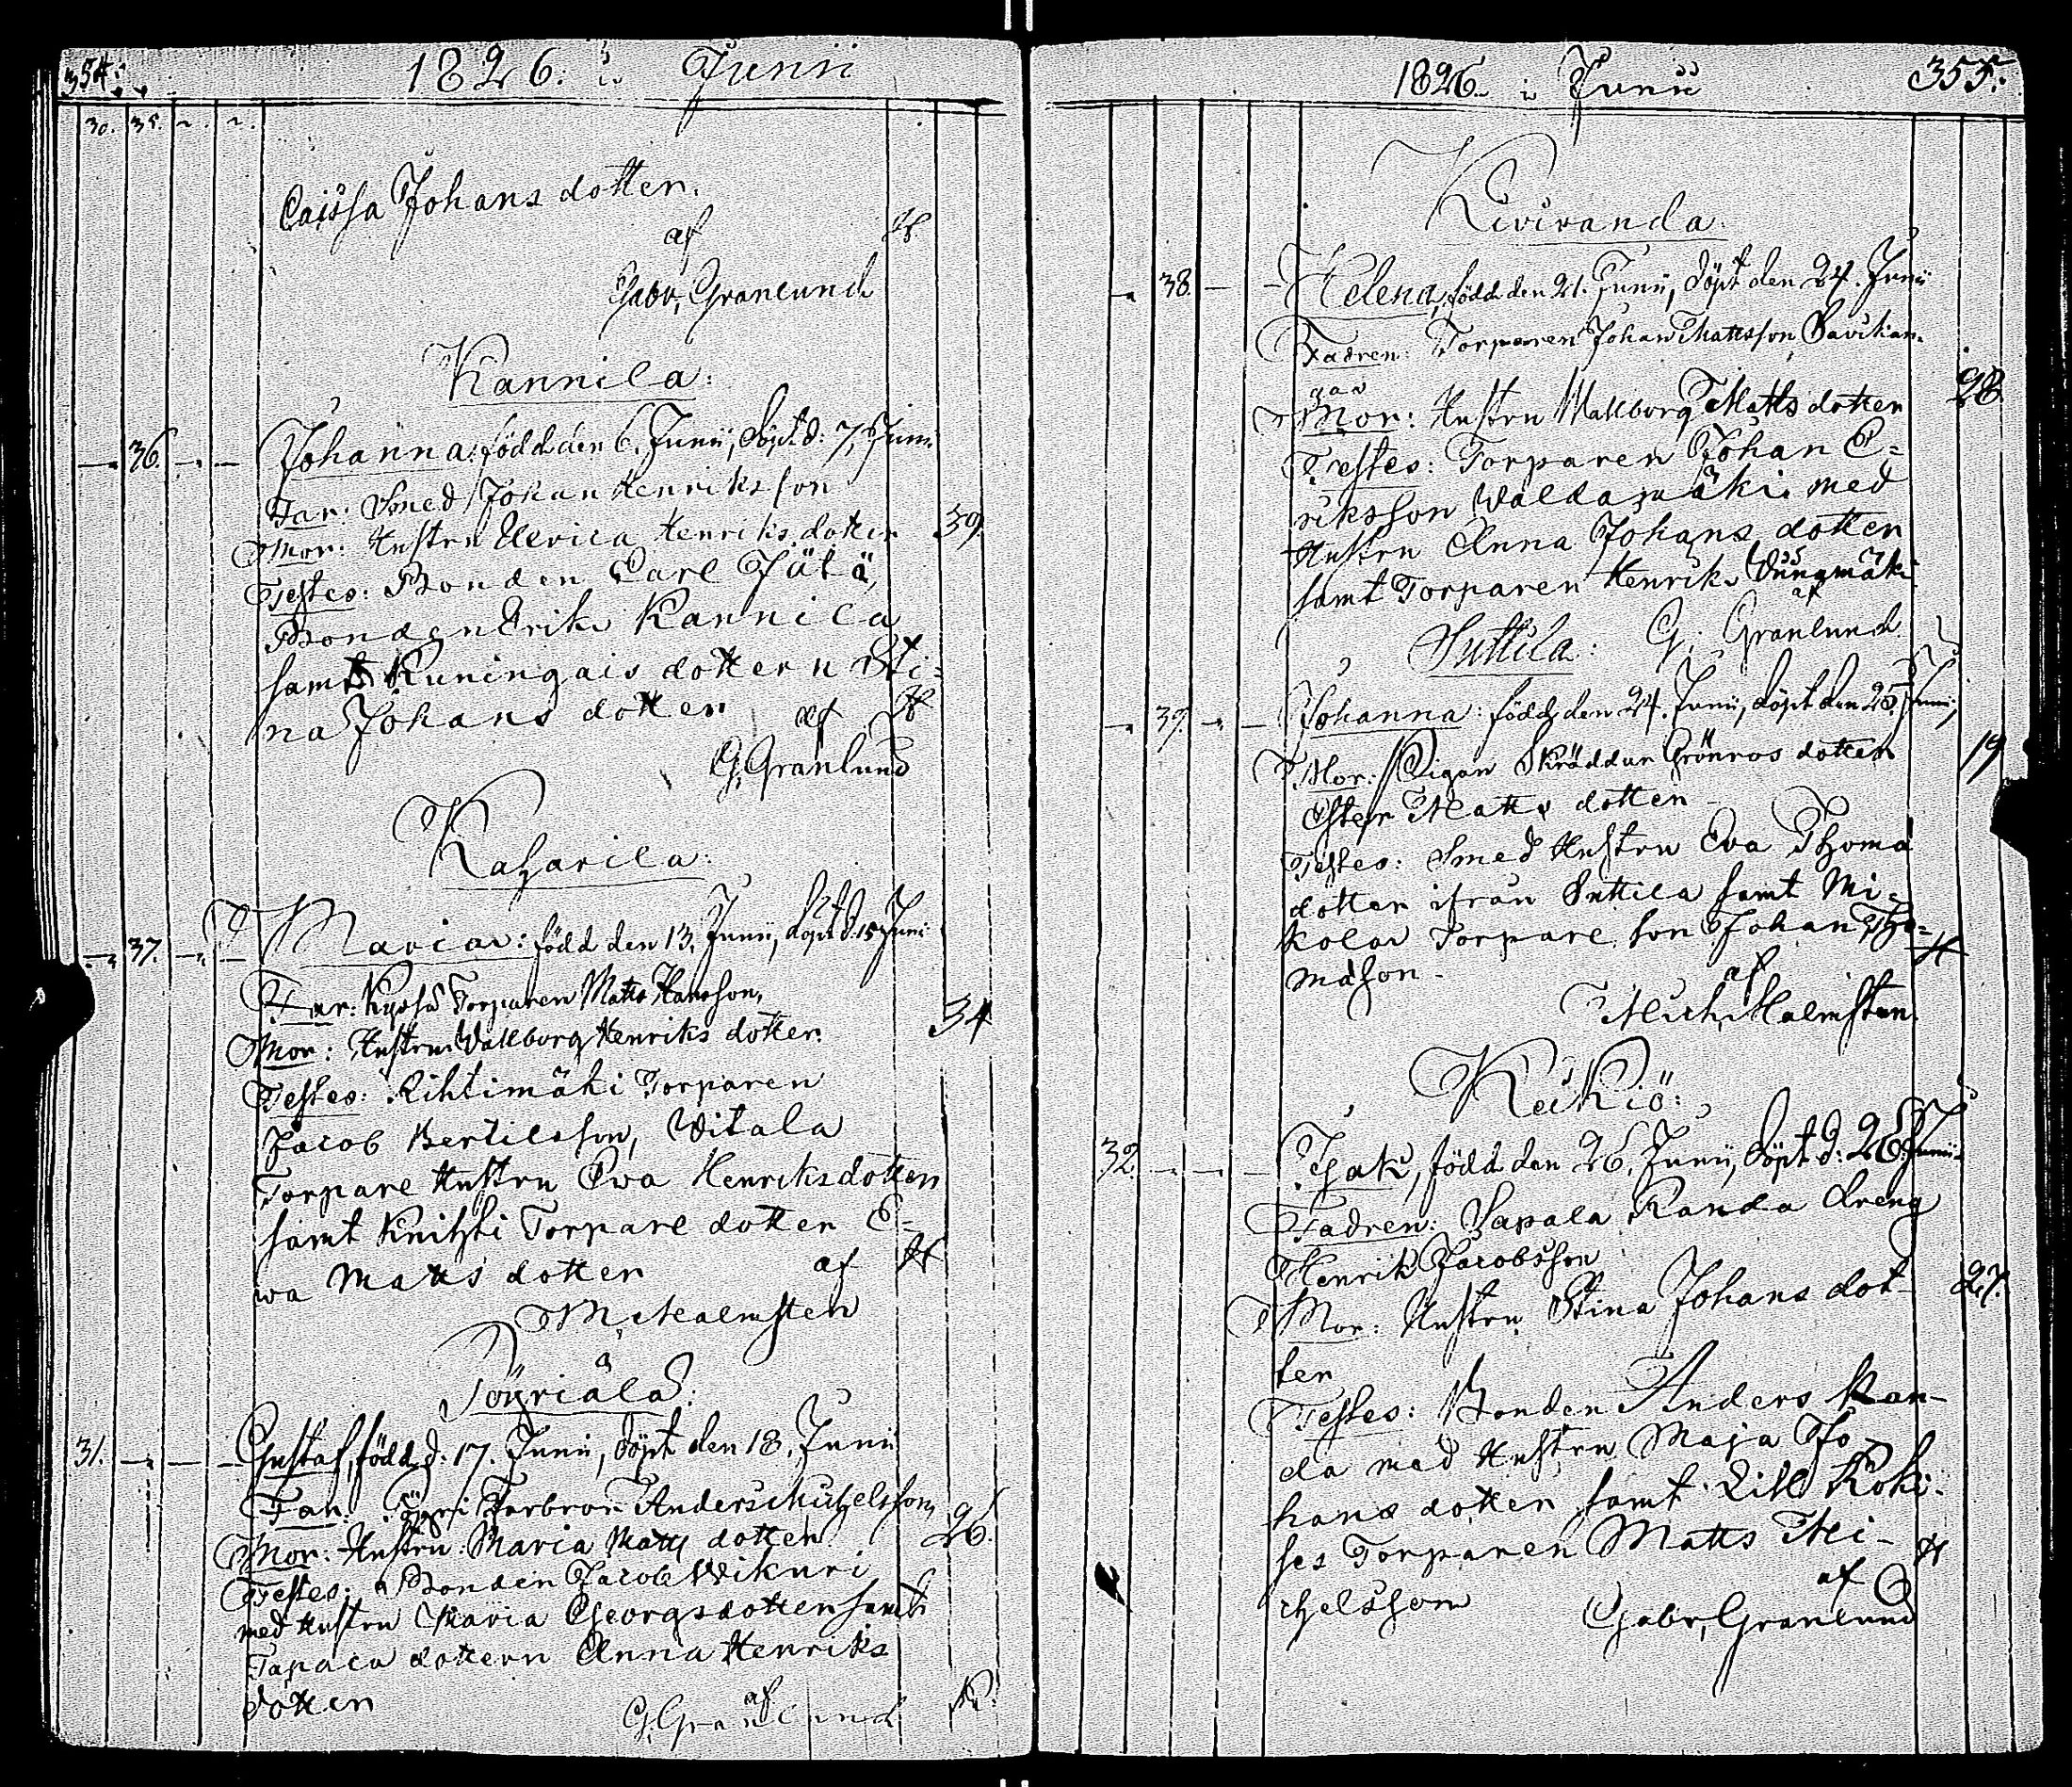 354.
1826. i Junii
30. 35. ~. ~.
Caissa Johans dotter.
af
Gabr. Granlund
Kannila:
36. Johanna: född den 6. Junii, döpt d: 7. Junii
Far: Smed Johan Henriksson
Mor: Hustru Ulrica Henriks dotter 39.
Testes: Bonden Carl Jätä,
Bonden Erik Kannila
samt Kuningais dottern Sti-
na Johans dotter af
G. Granlund
Kaharila:
37. Maria: född den 13. Junii, döpt d. 15 Junii
Far: Torparen Matts Hansson,
Mor: Hustru Wallborg Henriks dotter. 34
Testes: Rihtimäki Torparen
Jacob Bertilsson, Witala
Torpare Hustru Eva Henriksdotter
samt Knihti Torpare dotter E-
wa Matts dotter af
M. Malmsten
Pöyriälä:
31. Gustaf, född d. 17. Junii, döpt den 18. Junii
Far: Farbror Anders Michelsson,
Mor: Hustru Maria Matts dotter 26.
Testes: Bonden Jacob Wikuri
med Hustru Maria Georgsdotter samt
Tapala dottern Anna Henriks
dotter af
G. Granlund
1826. i Junii 355.
Kiviranda.
38. Helena, född den 21. Junii, döpt den 24. Junii
Fadren: Torparen Johan Mattsson Savikan-
gas 28
Mor: Hustru Wallborg Matts dotter
Testes: Torparen Johan E-
riksson Waldamäki med
Hustru Anna Johans dotter
samt Torparen Henrik
af
Suttila: G. Granlund
39. Johanna: född den 24. Junii, döpt den 25. Junii,
Mor: Pigan Skräddar Grönros dotter 19
Ester Matts dotter
Testes: Smed Hustru Eva Thomæ
dotter ifrån Suttila samt Mi-
kola Torpare son Johan Tho-
mæson af
Mich. Malmsten.
Keikiö:
32. Isak, född den 26. Junii, döpt d: 28. Junii
Fadren: Sapala Randa dreng
Henrik Jacobsson
Mor: Hustru Stina Johans dot- 27.
ter
Testes: Bonden Anders Ran-
da med Hustru Maja Jo-
hans dotter samt Lill Koki-
ses Torparen Matts Mi-
chelsson af
Gabr. Granlund